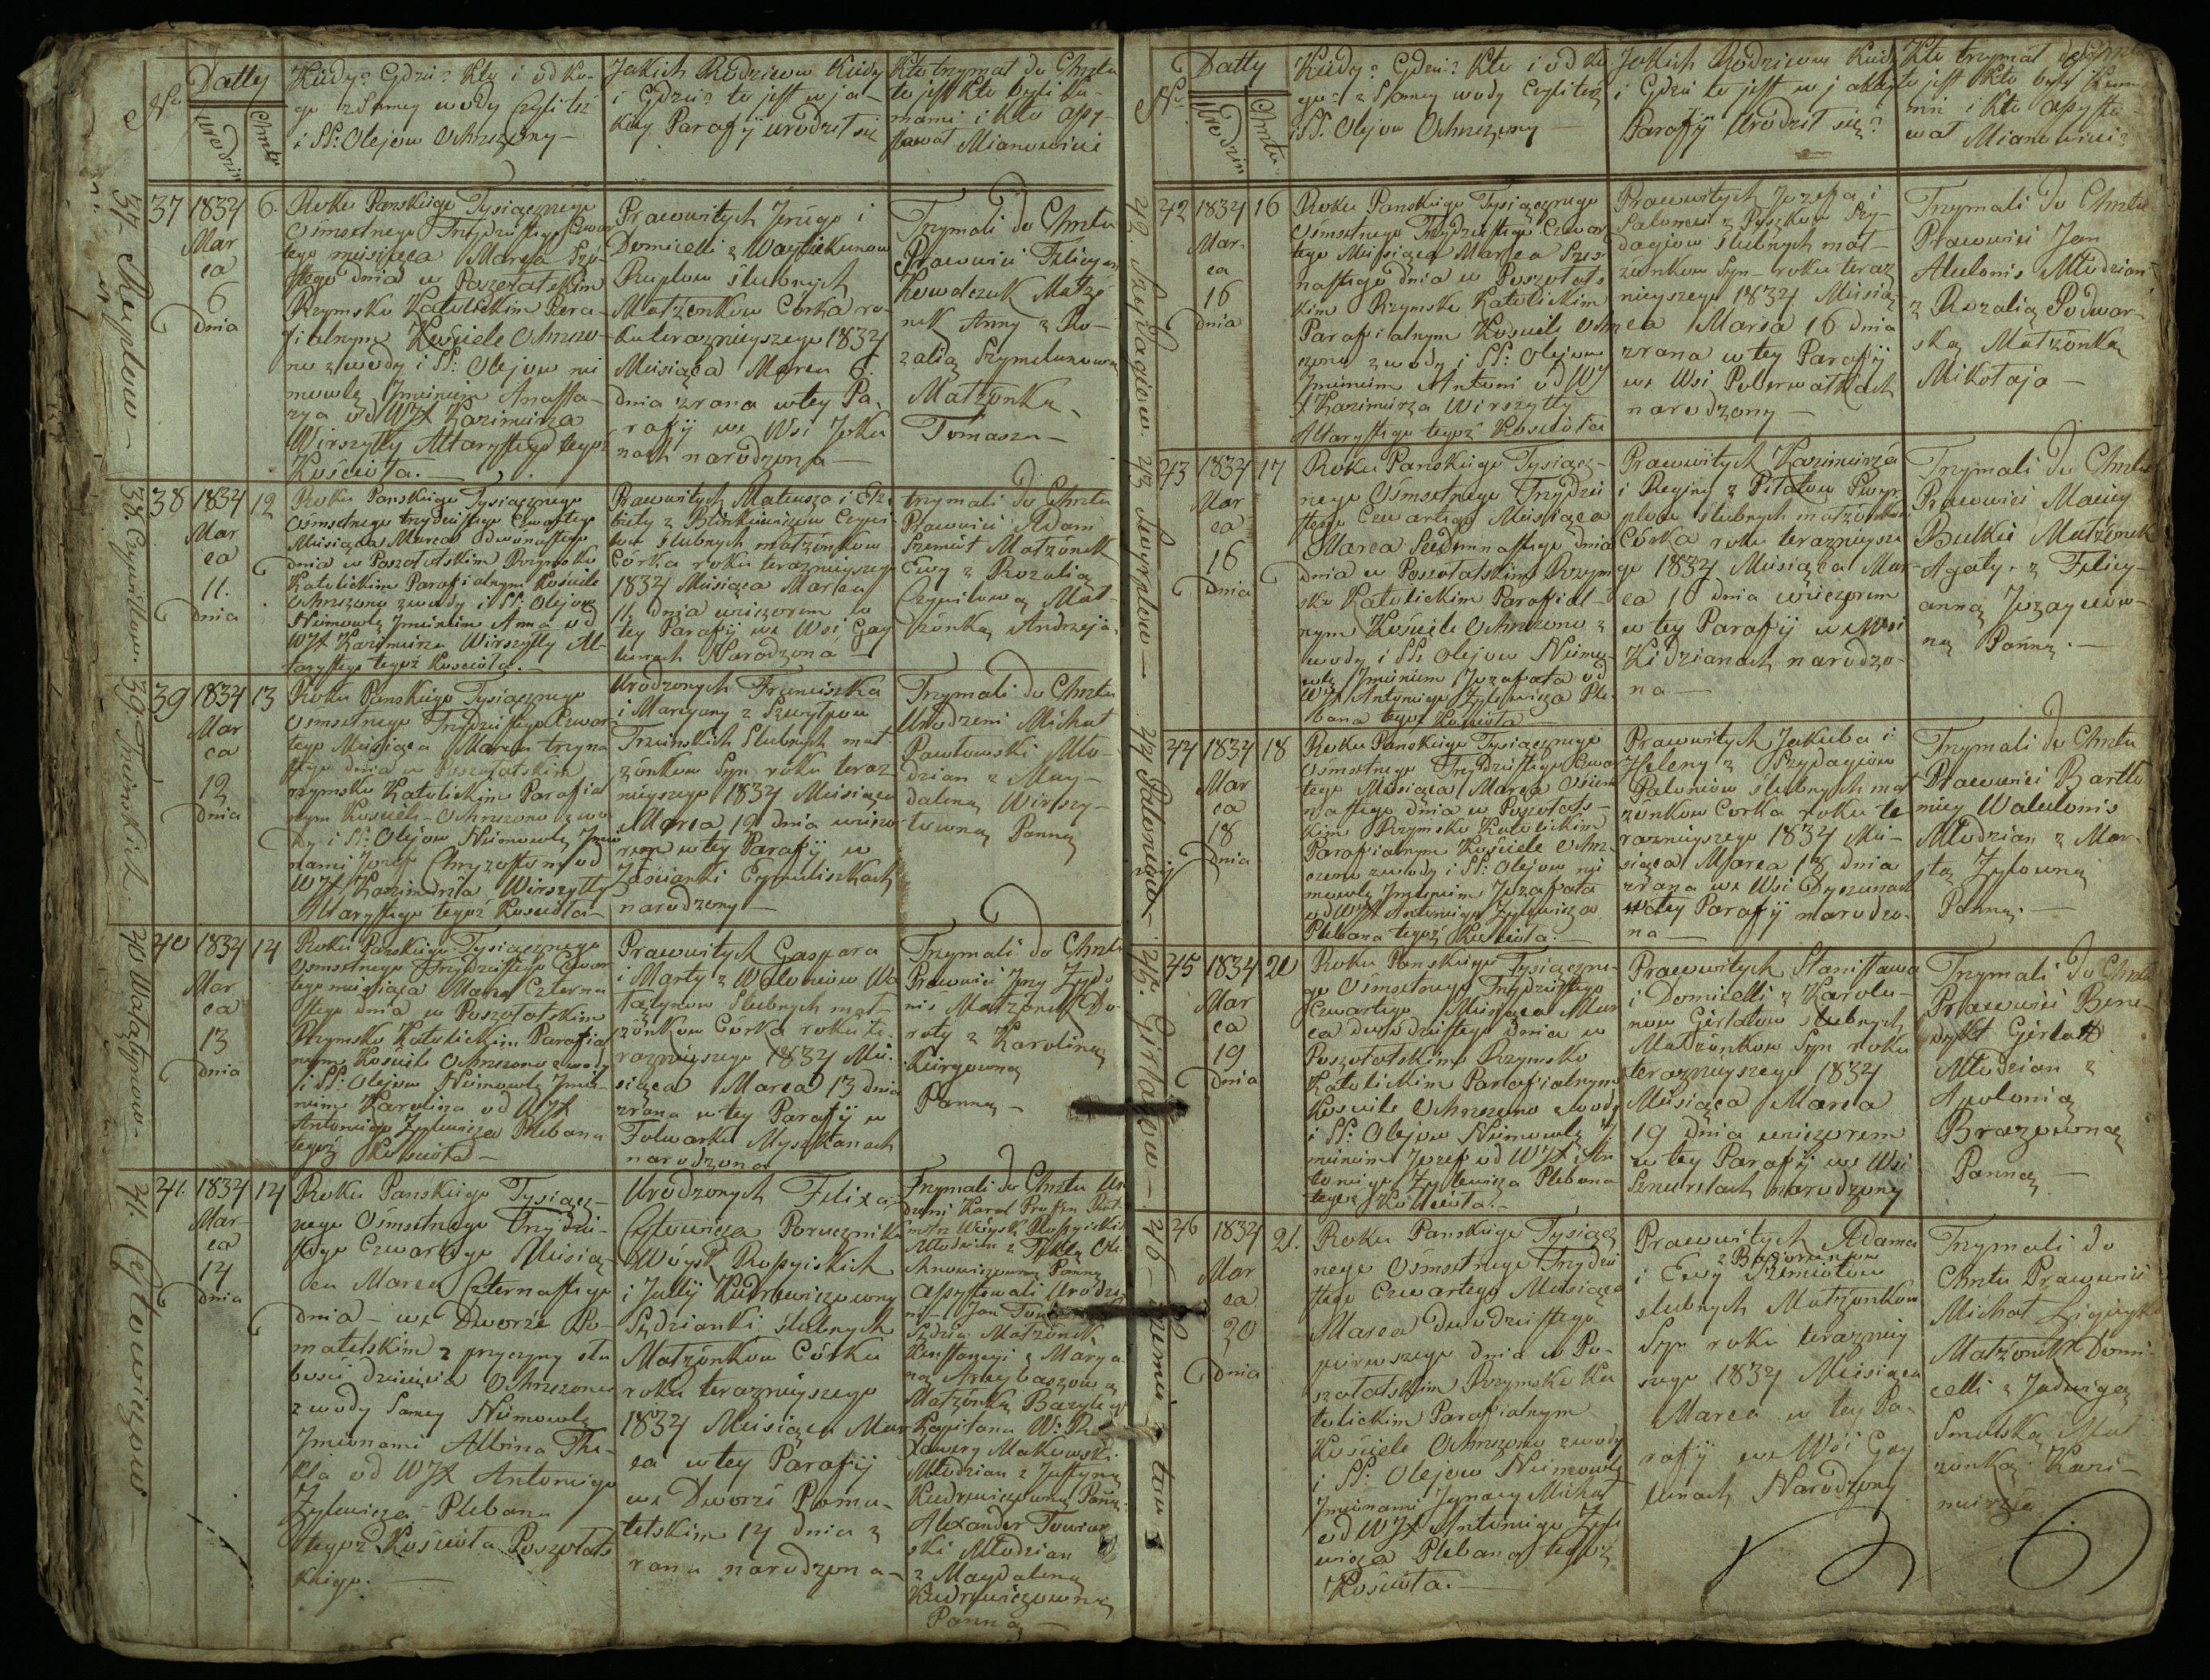 No
Datty
Urodzin
Chrztu
Kiedy? Gdzie? Kto i od ko-
go z Samey wody Czyli też
i SS: Olejow Ochrzczony
Jakich Rodzicow Kiedy
i Gdzie? to jest w ja-
kiey Parafij urodził się
Kto trzymał do Chrztu
to jest Kto byli ku-
mami i kto assy-
stował Mianowicie
37 Ruplow
37
1834
Mar
ca
6
dnia
6.
Roku Panskiego Tysiącznego
Osmsetnego Trzydziestego Czwar
tego miesiąca Marca Szó-
stego dnia w Poszołatskim
Rzymsko Katolickim Para-
fialnym Kościele Ochrzczo-
no z wody i SS: Olejow nie
mowlę Jmieniem Anasta-
zya od WJX Kazimierza
Wirszyłły Altarystego tegoż
Kościoła.
Prawowitych Jerzego i
Domicelli z
Ruplow slubnych
Małżonkow Corka ro-
ku terazniejszego 1834
Miesiąca Marca 6.
dnia zrana w tey Pa-
rafij we Wsi
nach narodzona
Trzymali do Chrztu
Prawowici Felicyan
Kowalczuk Małżo-
nek Anny z Ro-
zalią
Małżonką
Tomasza
38
1834
Mar
ca
11.
dnia
12
Roku Panskiego Tysiącznego
Osmsetnego trzydziestego Czwartego
Miesiąca Marca dwonastego
dnia w Poszołatskim Rzymsko
Katolickim Parafialnym Kościele
Ochrzczono z wody i SS: Olejow
Niemowlę Jmieniem Anna od
WJX Kazimierza Wirszyłły Al-
tarystego tegoż Kościoła.
Prawowitych Mateusza i Elż-
biety z
slubnych małżonkow
Córka roku terazniejszego
1834 Miesiąca Marca
11. dnia wieczorem w
tey Parafij we Wsi Gay
lunach Narodzona
trzymali do Chrztu
Prawowici Adam
Szemiot Małżonek
Ewy z Rozalią
Małżonką Andrzeja.
39. Trzinskich
39
1834
Mar
ca
12
dnia
13
Roku Panskiego Tysiącznego
Osmsetnego Trzydziestego Czwar
tego Miesiąca Marca trzyna
stego dnia w Poszołatskim
rzymsko Katolickim Parafial
nym Kościele Ochrzczono z wo
dy i SS: Olejow Niemowlę Jmio
nami Jozef Chryzostom od
WJX Kazimierza Wirszyłły
Altarystego tegoż Kościoła
Urodzonych Franciszka
i Maryany z
Trzinskich Slubnych mał-
żonkow Syn roku teraz-
niejszego 1834 Miesiąca
Marca 12 dnia wieczo-
rem w tey Parafij w
Zaścianki
narodzony
Trzymali do Chrztu
Urodzeni Michał
Pawłowski Mło-
dzian z Mag-
daleną Wirszy-
łowną Panną
40
40
1834
Mar
ca
13
dnia
14
Roku Panskiego Tysiącznego
Osmsetnego Trzydziestego Czwar
tego miesiąca Marca Czterna
stego dnia w Poszołatskim
Rzymsko Katolickim Parafial
nym Kościele Ochrzczono z wody
i SS: Olejow Niemowlę Jmie-
niem Karolina od WJX
Antoniego Zylewicza Plebana
tegoż Kościoła
Prawowitych Gaspara
i Marty z
Slubnych mał-
żonkow Córka roku te-
razniejszego 1834 Mie-
siąca Marca 13 dnia
zrana w tey Parafij w
Folwarku
narodzona
Trzymali do Chrztu
Prawowici Jerzy
Małżonek Do-
roty z Karoliną
Panną
41.
41.
1834
Mar-
ca
14
dnia
14
Roku Panskiego Tysiącz-
nego Osmsetnego Trzydzie-
stego Czwartego Miesią-
ca Marca Czternastego
dnia we Dworze Po-
matelskim z przyczyny sła
bości dziecięcia Ochrzczono
z wody Samey Niemowlę
Jmionami Albina The-
kla od WJX Antoniego
Zylewicza Plebana
tegoż Kościoła Poszołats
kiego.
Urodzonych Felixa
Porucznika
Woysk Rossyiskich
i Julij Kudrewiczowny
Sędzianki slubnych
Małżonkow Córka
roku terazniejszego
1834 Miesiąca Mar
ca w tey Parafij
we Dworze Poma-
telskim 14 dnia z
rana narodzona
Trzymali do Chrztu Uro
dzeni Karol
Woysk Rossyiskich
Młodzian z Teklą
Panną
Assystowali Urodze
ni Jan
Sędzia Małżonek
Konstancyi z Marya
ną
Małżonką Bazylego
Kapitana
Xawery Makowski
Młodzian z Justyną
Kudrewiczowną Panną.
Alexander
ski Młodzian
z Magdaleną
Kudrewiczowną
Panną
No
Datty
Urodzin
Chrztu
Kiedy? Gdzie? Kto i od ko
go? z Samey wody Czyli też
i SS. Olejow Ochrzczony
Jakich Rodzicow Kiedy
i Gdzie to jest w jakiey
Parafij Urodził się?
Kto trzymał do Chrztu
to jest Kto byli Kuma
mi i Kto assysto-
wał Mianowicie?
42. Szydagiow
42
1834
Mar-
ca
16
dnia
16
Roku Panskiego Tysiącznego
Osmsetnego Trzydziestego Czwar
tego Miesiąca Marca Szes-
nastego dnia w Poszołats
kim Rzymsko Katolickim
Parafialnym Kościele Ochrz
czono z wody i SS: Olejow
Jmieniem Antoni od WJ
X Kazimierza Wirszyłły
Altarystego tegoż Kościoła
Prawowitych Jozefa i
Salomei z Szy-
dagiow slubnych mał-
żonkow Syn roku teraz
niejszego 1834 Miesią
ca Marca 16 dnia
zrana w tey Parafij
we Wsi
narodzony
Trzymali do Chrztu
Prawowici Jan
Młodzian
z Rozalią Podwor-
ską Małżonką
Mikołaja
43
43
1834
Mar
ca
16
dnia
17
Roku Panskiego Tysiącz-
nego Osmsetnego Trzydzie
stego Czwartego Miesiąca
Marca Siedmnastego dnia
dnia w Poszołatskim Rzym
sko Katolickim Parafial-
nym Kościele Ochrzczono z
wody i SS Olejow Niemo-
wlę Jmieniem Jozafata od
WJX Antoniego Zylewicza Ple-
bana tegoż Kościoła
Prawowitych Kazimierza
i Reginy z Piłatow
plow slubnych małżonkow
Córka roku terazniejsze
go 1834 Miesiąca Mar-
ca 16 dnia wieczorem
w tey Parafij we Wsi
Kidzianach narodzo-
na
Trzymali do Chrztu
Prawowici Maciey
Butkie Małżonek
Agaty z Felicy-
anną
ną Panną.
44
44
1834
Mar
ca
18
dnia
18
Roku Panskiego Tysiącznego
Osmsetnego Trzydziestego Czwar
tego Miesiąca Marca Osiem
nastego dnia w Poszołats-
kim Rzymsko Katolickim
Parafialnym Kościele Ochrz-
czono z wody i SS: Olejow nie
mowlę Jmieniem Jozafata
od WJX Antoniego Zylewicza
Plebana tegoż Kościoła.
Prawowitych Jakuba i
Heleny z Szydagiow
Paloniow slubnych mał
żonkow Corka roku te
razniejszego 1834 Mie-
siąca Marca 18 dnia
zrana we Wsi
w tey Parafij narodzo-
na
Trzymali do Chrztu
Prawowici Bartło
miey
Młodzian z Mar-
tą
Panną.
45. Girłatow
45
1834
Mar
ca
19
dnia
20
Roku Panskiego Tysiączne-
go Osmsetnego Trzydziestego
Czwartego Miesiąca Mar
ca dwudziestego dnia w
Poszołatskim Rzymsko
Katolickim Parafialnym
Kościele Ochrzczono z wody
i SS: Olejow Niemowlę J
mieniem Jozef od WJX An
toniego Zylewicza Plebana
tegoż Kościoła.
Prawowitych Stanisława
i Domicelli z Karolu-
now Girłatow slubnych
Małżonkow Syn roku
terazniejszego 1834
Miesiąca Marca
19 dnia wieczorem
w tey Parafij we Wsi
narodzony
Trzymali do Chrztu
Prawowici Bene-
dykt Girłatt
Młodzian z
Apolonią
Panną
46
46
1834
Mar
ca
20
dnia
21.
Roku Panskiego Tysiącz
nego Osmsetnego Trzydzie
stego Czwartego Miesiąca
Marca dwudziestego
pierwszego dnia w Po-
szołatskim Rzymsko Ka
tolickim Parafialnym
Kościele Ochrzczono z wody
i SS: Olejow Niemowlę
Jmionami Jgnacy Michał
od WJX Antoniego Zyle
wicza Plebana tegoż
Kościoła.
Prawowitych Adama
i Ewy Szemiotow
slubnych Małżonkow
Syn roku terazniey
szego 1834 Miesiąca
Marca w tey Pa-
rafij we Wsi Gay
lunach Narodzony
Trzymali do
Chrztu Prawowici
Michał
Małżonek Domi-
celli z Jadwigą
Smolską Mał
żonką Kazi-
mierza